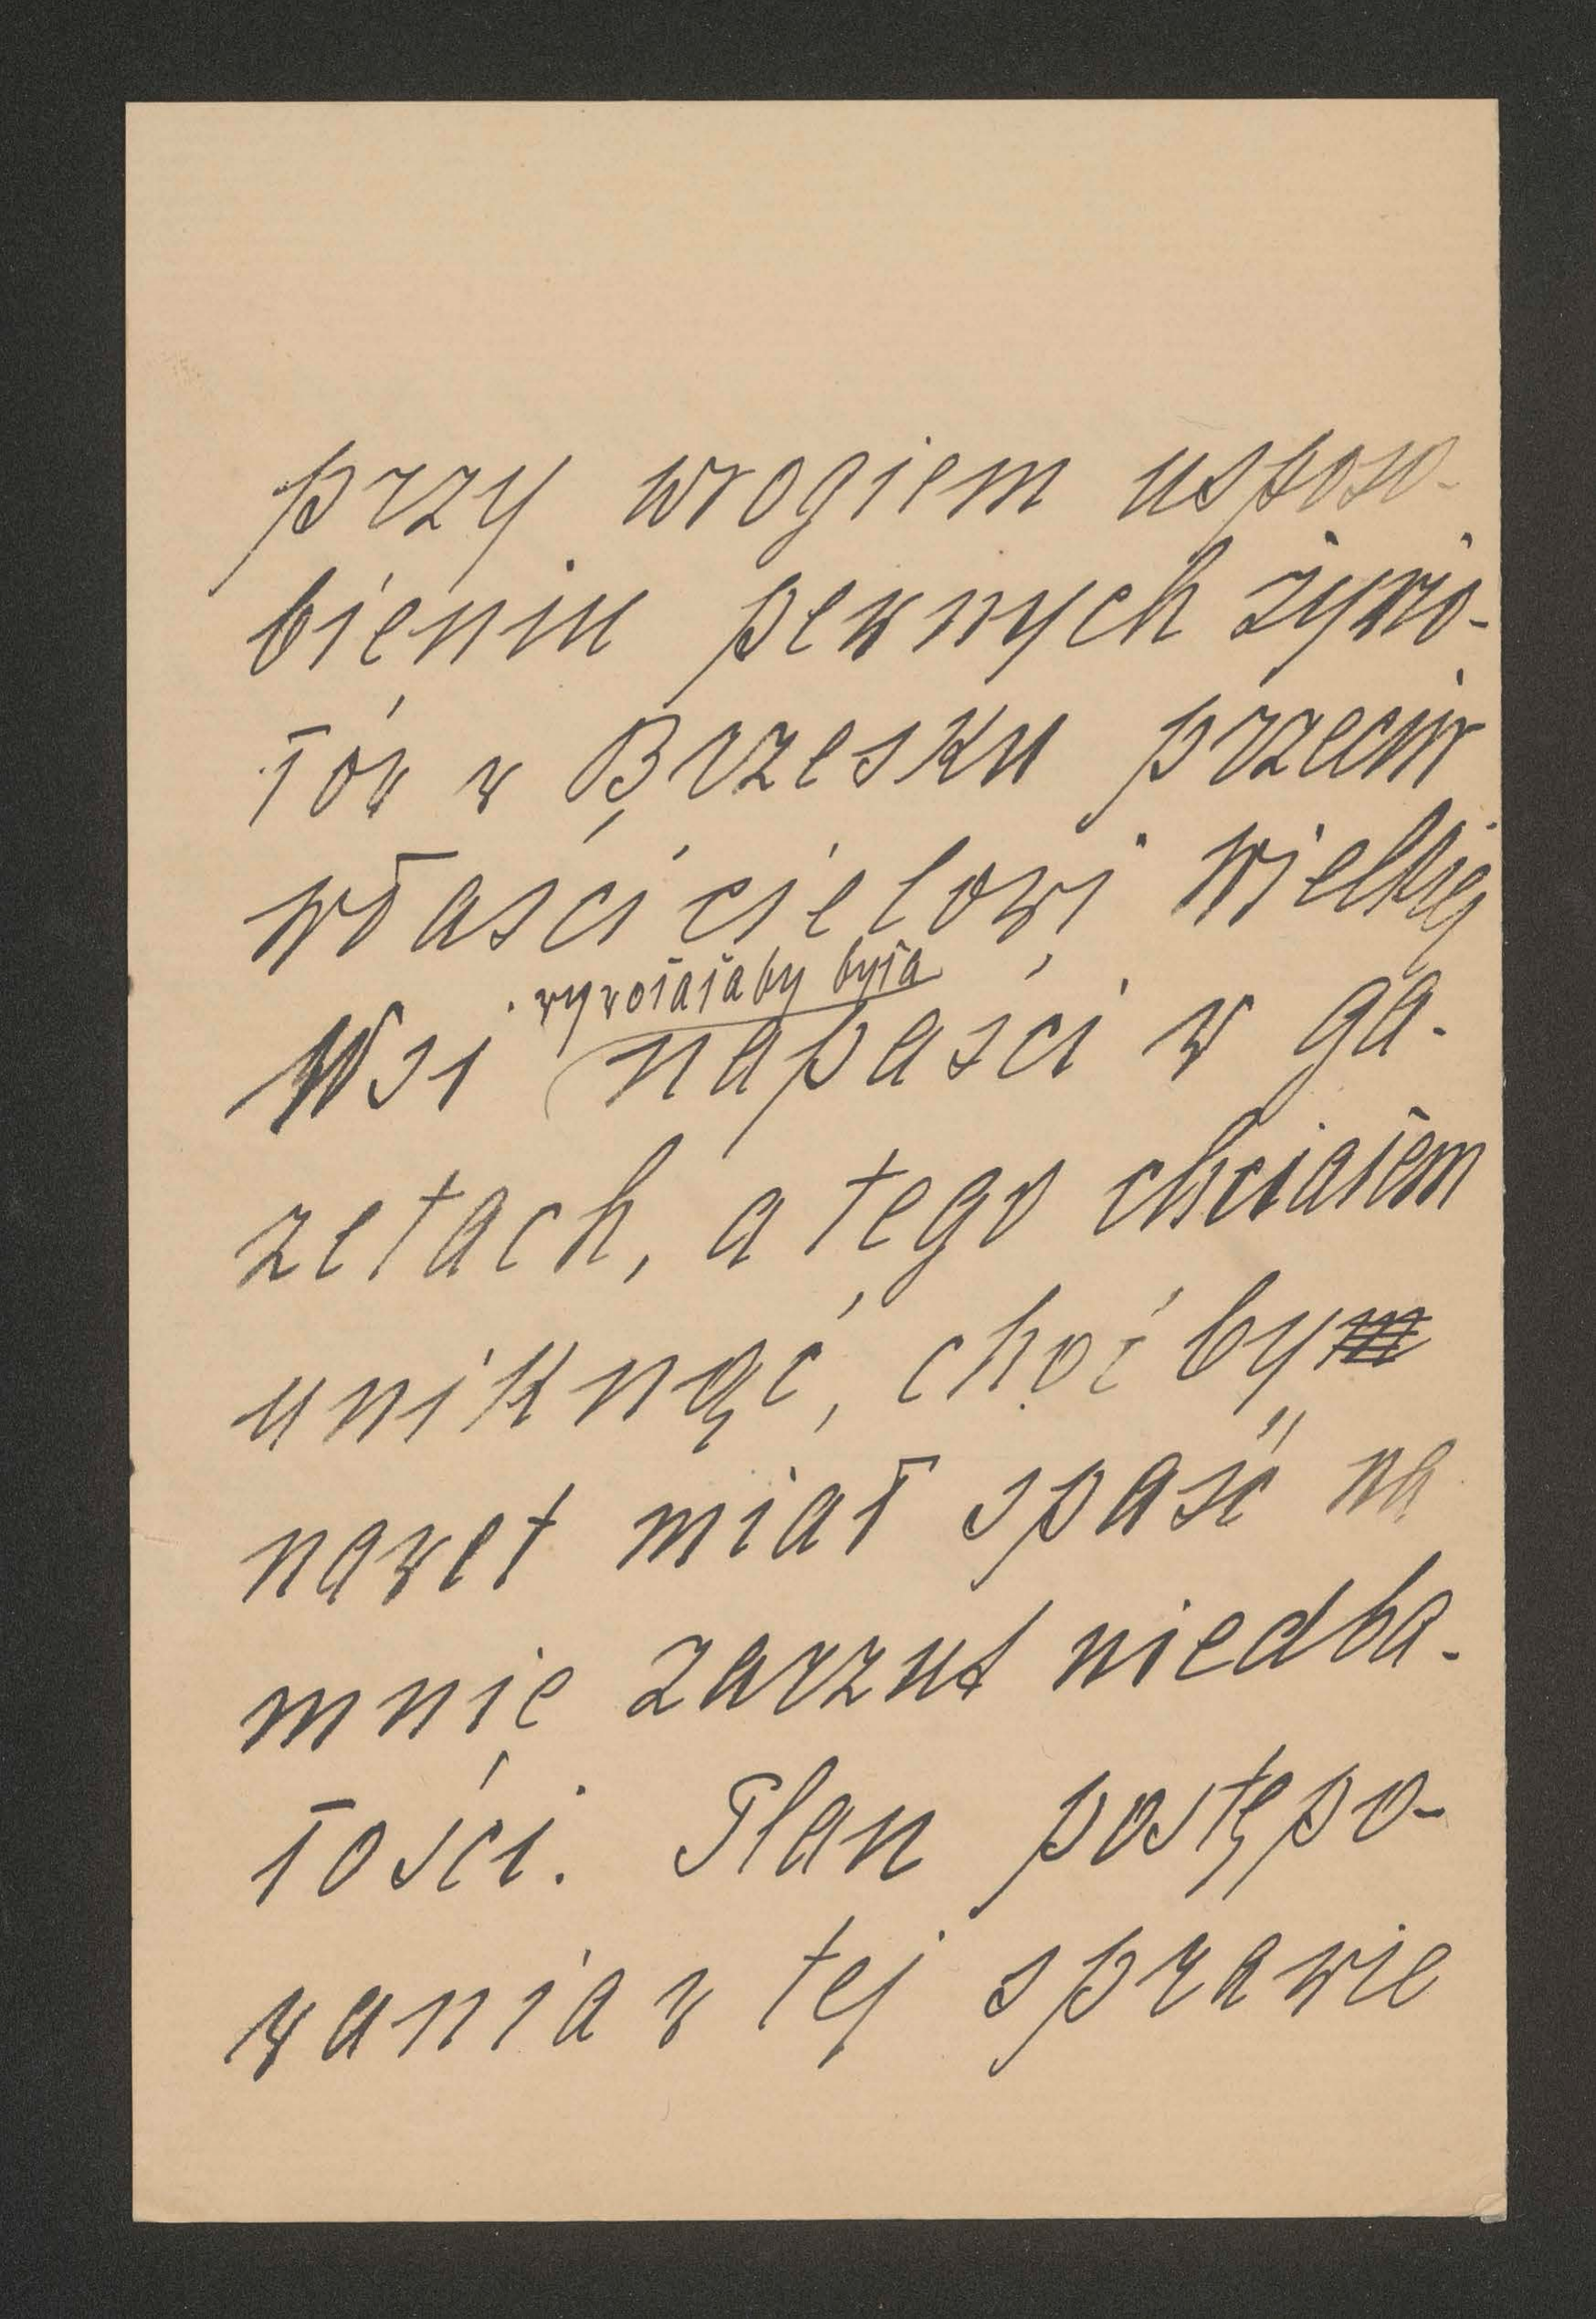 przy wrogiem usposo-
bieniu pewnych żywio-
łów w Brzesku przeciw
właścicielowi Wielkiej
wywołałaby była
Wsi napaści w ga-
zetach, a tego chciałem
uniknąć, choćbym
nawet miał spaść na
mnie zarzut niedba-
łości. Plan postępo-
wania w tej sprawie